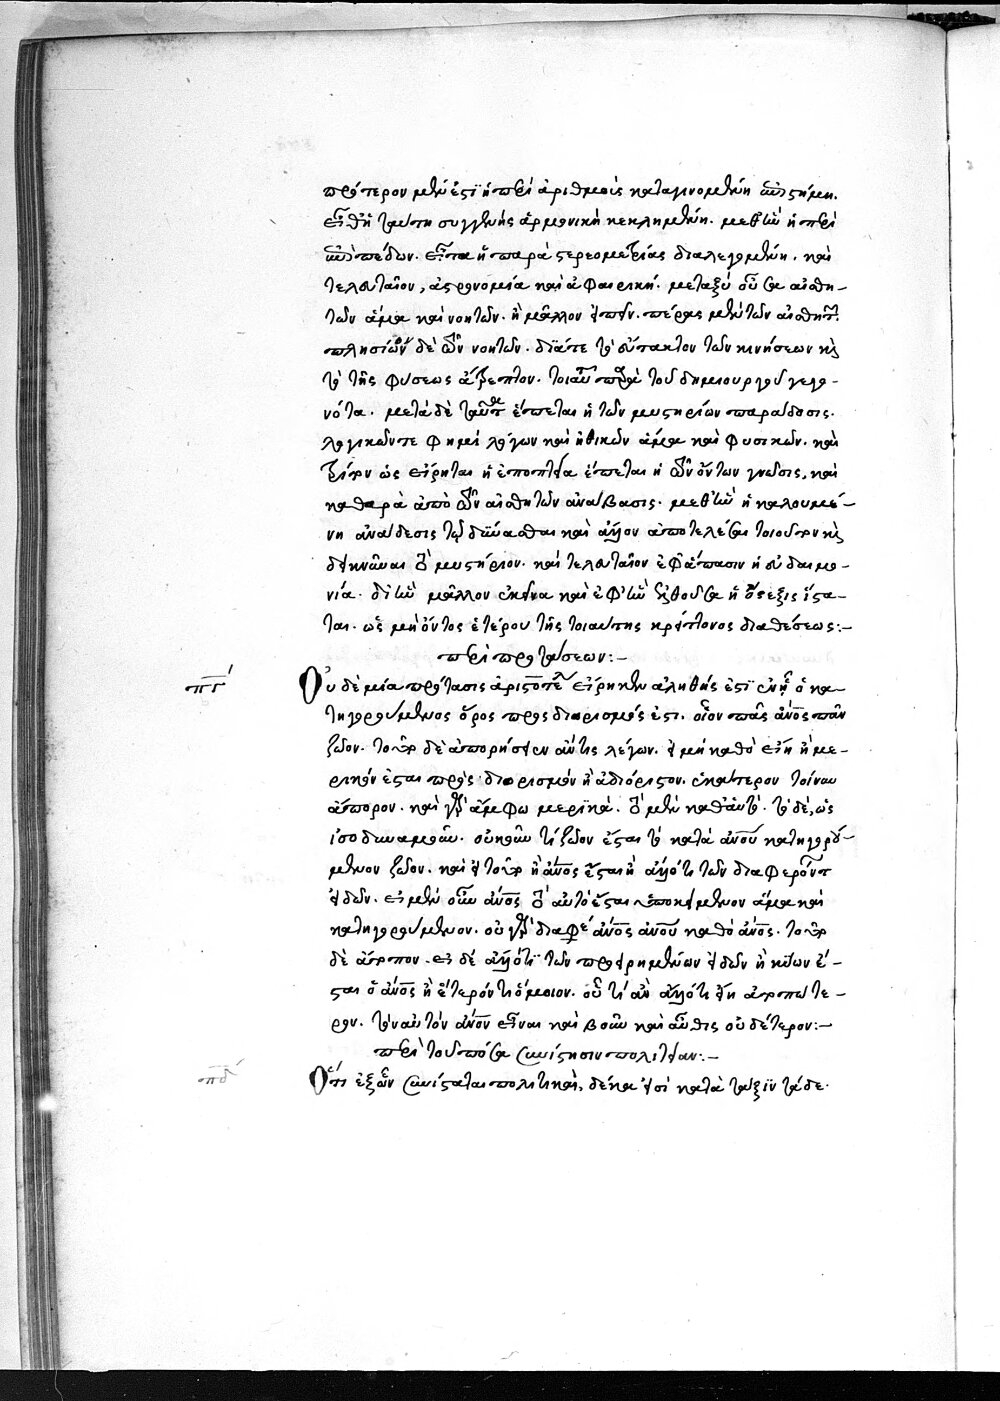 πρότερον μὲν ἐστὶ ἡ περὶ ἀριθμοὺς καταγινομένη ἐπιστήμη.
εἶθ' ἡ ταύτη συγγενὴς ἁρμονικὴ κεκλημένη. μεθ' ἣν ἡ περὶ
ἐπιπέδων. εἶτα ἡ παρὰ στερεομετρίας διαλεγομένη. καὶ
τελευταῖον, ἀστρονομία καὶ σφαιρική. μεταξὺ οὖσα αἰσθη-
τῶν ἅμα καὶ νοητῶν. ἢ μᾶλλον εἰπεῖν. πέρας μὲν τῶν αἰσθητῶν
πλησίον δὲ τῶν νοητῶν. διά τε τὸ εὔτακτον τῶν κινήσεων καὶ
τὸ τῆς φύσεως ἄτρεπτον. τοιαῦτα παρὰ τοῦ δημιουργοῦ γεγο-
νότα. μετὰ δὲ ταῦτα ἕπεται ἡ τῶν μυστηρίων παράδοσις.
λογικῶν τε φημὶ λόγων καὶ ἠθικῶν ἅμα καὶ φυσικῶν. καὶ
τρίτον ὡς εἴρηται ἡ ἐποπτεία ἕπεται ἡ τῶν ὄντων γνῶσις, καὶ
καθαρὰ ἀπὸ τῶν αἰσθητῶν ἀνάβασις. μεθ' ἣν ἡ καλουμέ-
νη ἀνάδεσις τῷ δύνασθαι καὶ ἄλλον ἀποτελέσαι τοιοῦτον καὶ
δεικνύναι τὸ μυστήριον. καὶ τελευταῖον ἐφ' ἅπασιν ἡ εὐδαιμο-
νία. δι' ἣν μᾶλλον ἐκεῖνα καὶ ἐφ' ἣν ἐλθοῦσα ἡ ὄρεξις ἵστα-
ται. ὡς μὴ ὄντος ἑτέρου τῆς τοιαύτης κρείττονος διαθέσεως:-
περὶ προτάσεων:-
πγ΄ Οὐδεμία πρότασις ἀριστοτέλει εἴρηκεν ἀληθής ἐστὶ ἐν ᾗ ὁ κα-
τηγορούμενος ὅρος πρὸς διορισμός ἐστι. οἷον πᾶς ἄνος πᾶν
ζῶον. τοῦτο δὲ ἀπορήσειεν ἄν τις λέγων. εἰ μὴ καθὸ εἴη ἢ με-
ρικὸν ἔσται πρὸς διορισμὸν ἢ ἀδιόριστον. ἑκάτερον τοίνυν
ἄπορον. καὶ γὰρ ἄμφω μερικά. τὸ μὲν καθ' αὑτό. τὸ δέ, ὡς
ἰσοδυναμοῦν. οὐκοῦν τί ζῶον ἔσται τὸ κατὰ ἀνου κατηγορού-
μενον ζῶον. καὶ εἰ τοῦτο ἢ ἄνος ἔσται ἢ ἄλλό τι τῶν διαφερόντων
εἰδῶν. εἰ μὲν οὖν ἄνος τὸ αὐτὸ ἔσται ὑποκείμενον ἅμα καὶ
κατηγορούμενον. οὐ γὰρ διαφέρει ἄνος ἄνου καθὸ ἄνος. τοῦτο
δὲ ἄτοπον. εἰ δὲ ἄλλό τι τῶν προειρημένων εἰδῶν ἢ κύων ἔ-
σται ὁ ἄνος ἢ ἕτερόν τι ὅμοιον. οὗ τί ἂν ἄλλό τι εἴη ἀτοπώτε-
ρον. τὸν αὐτὸν ἄνον εἶναι καὶ βοῦν καὶ αὖθις οὐδέτερον:-
περὶ τοῦ πόσα συνίστησιν πολιτείαν:-
πδ΄ Ὅτι ἐξ ὧν συνίσταται πολιτικὴ, δέκα εἰσὶ κατὰ τάξιν τάδε.